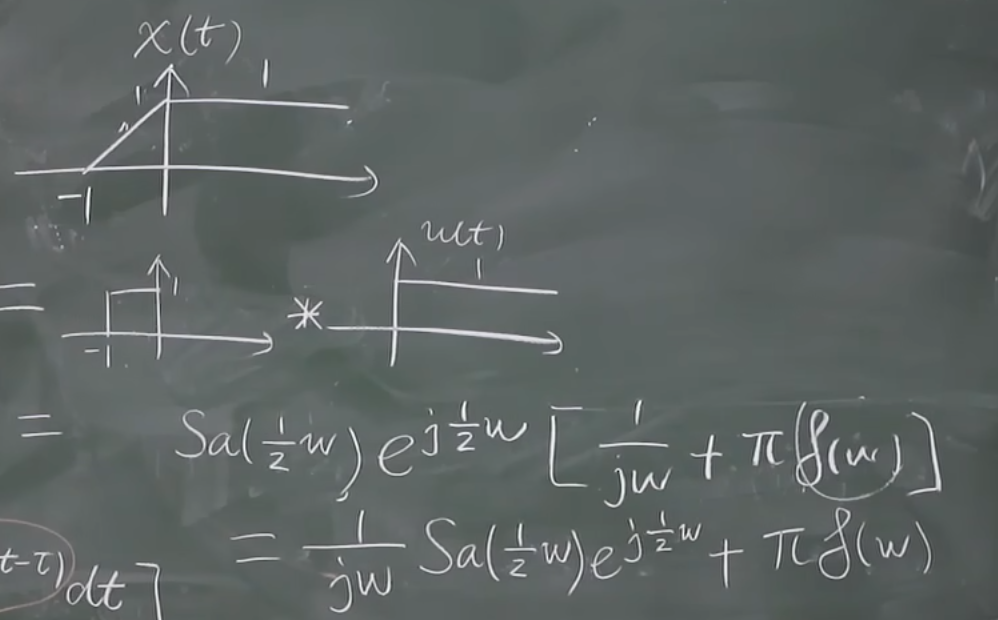 x(t)
1 1
-1
u(t)
= 1 * 1
-1
= Sa(½w) e^{j½w} [ 1/jw + π δ(w) ]
= 1/jw Sa(½w) e^{j½w} + π δ(w)
t-τ) dt ]